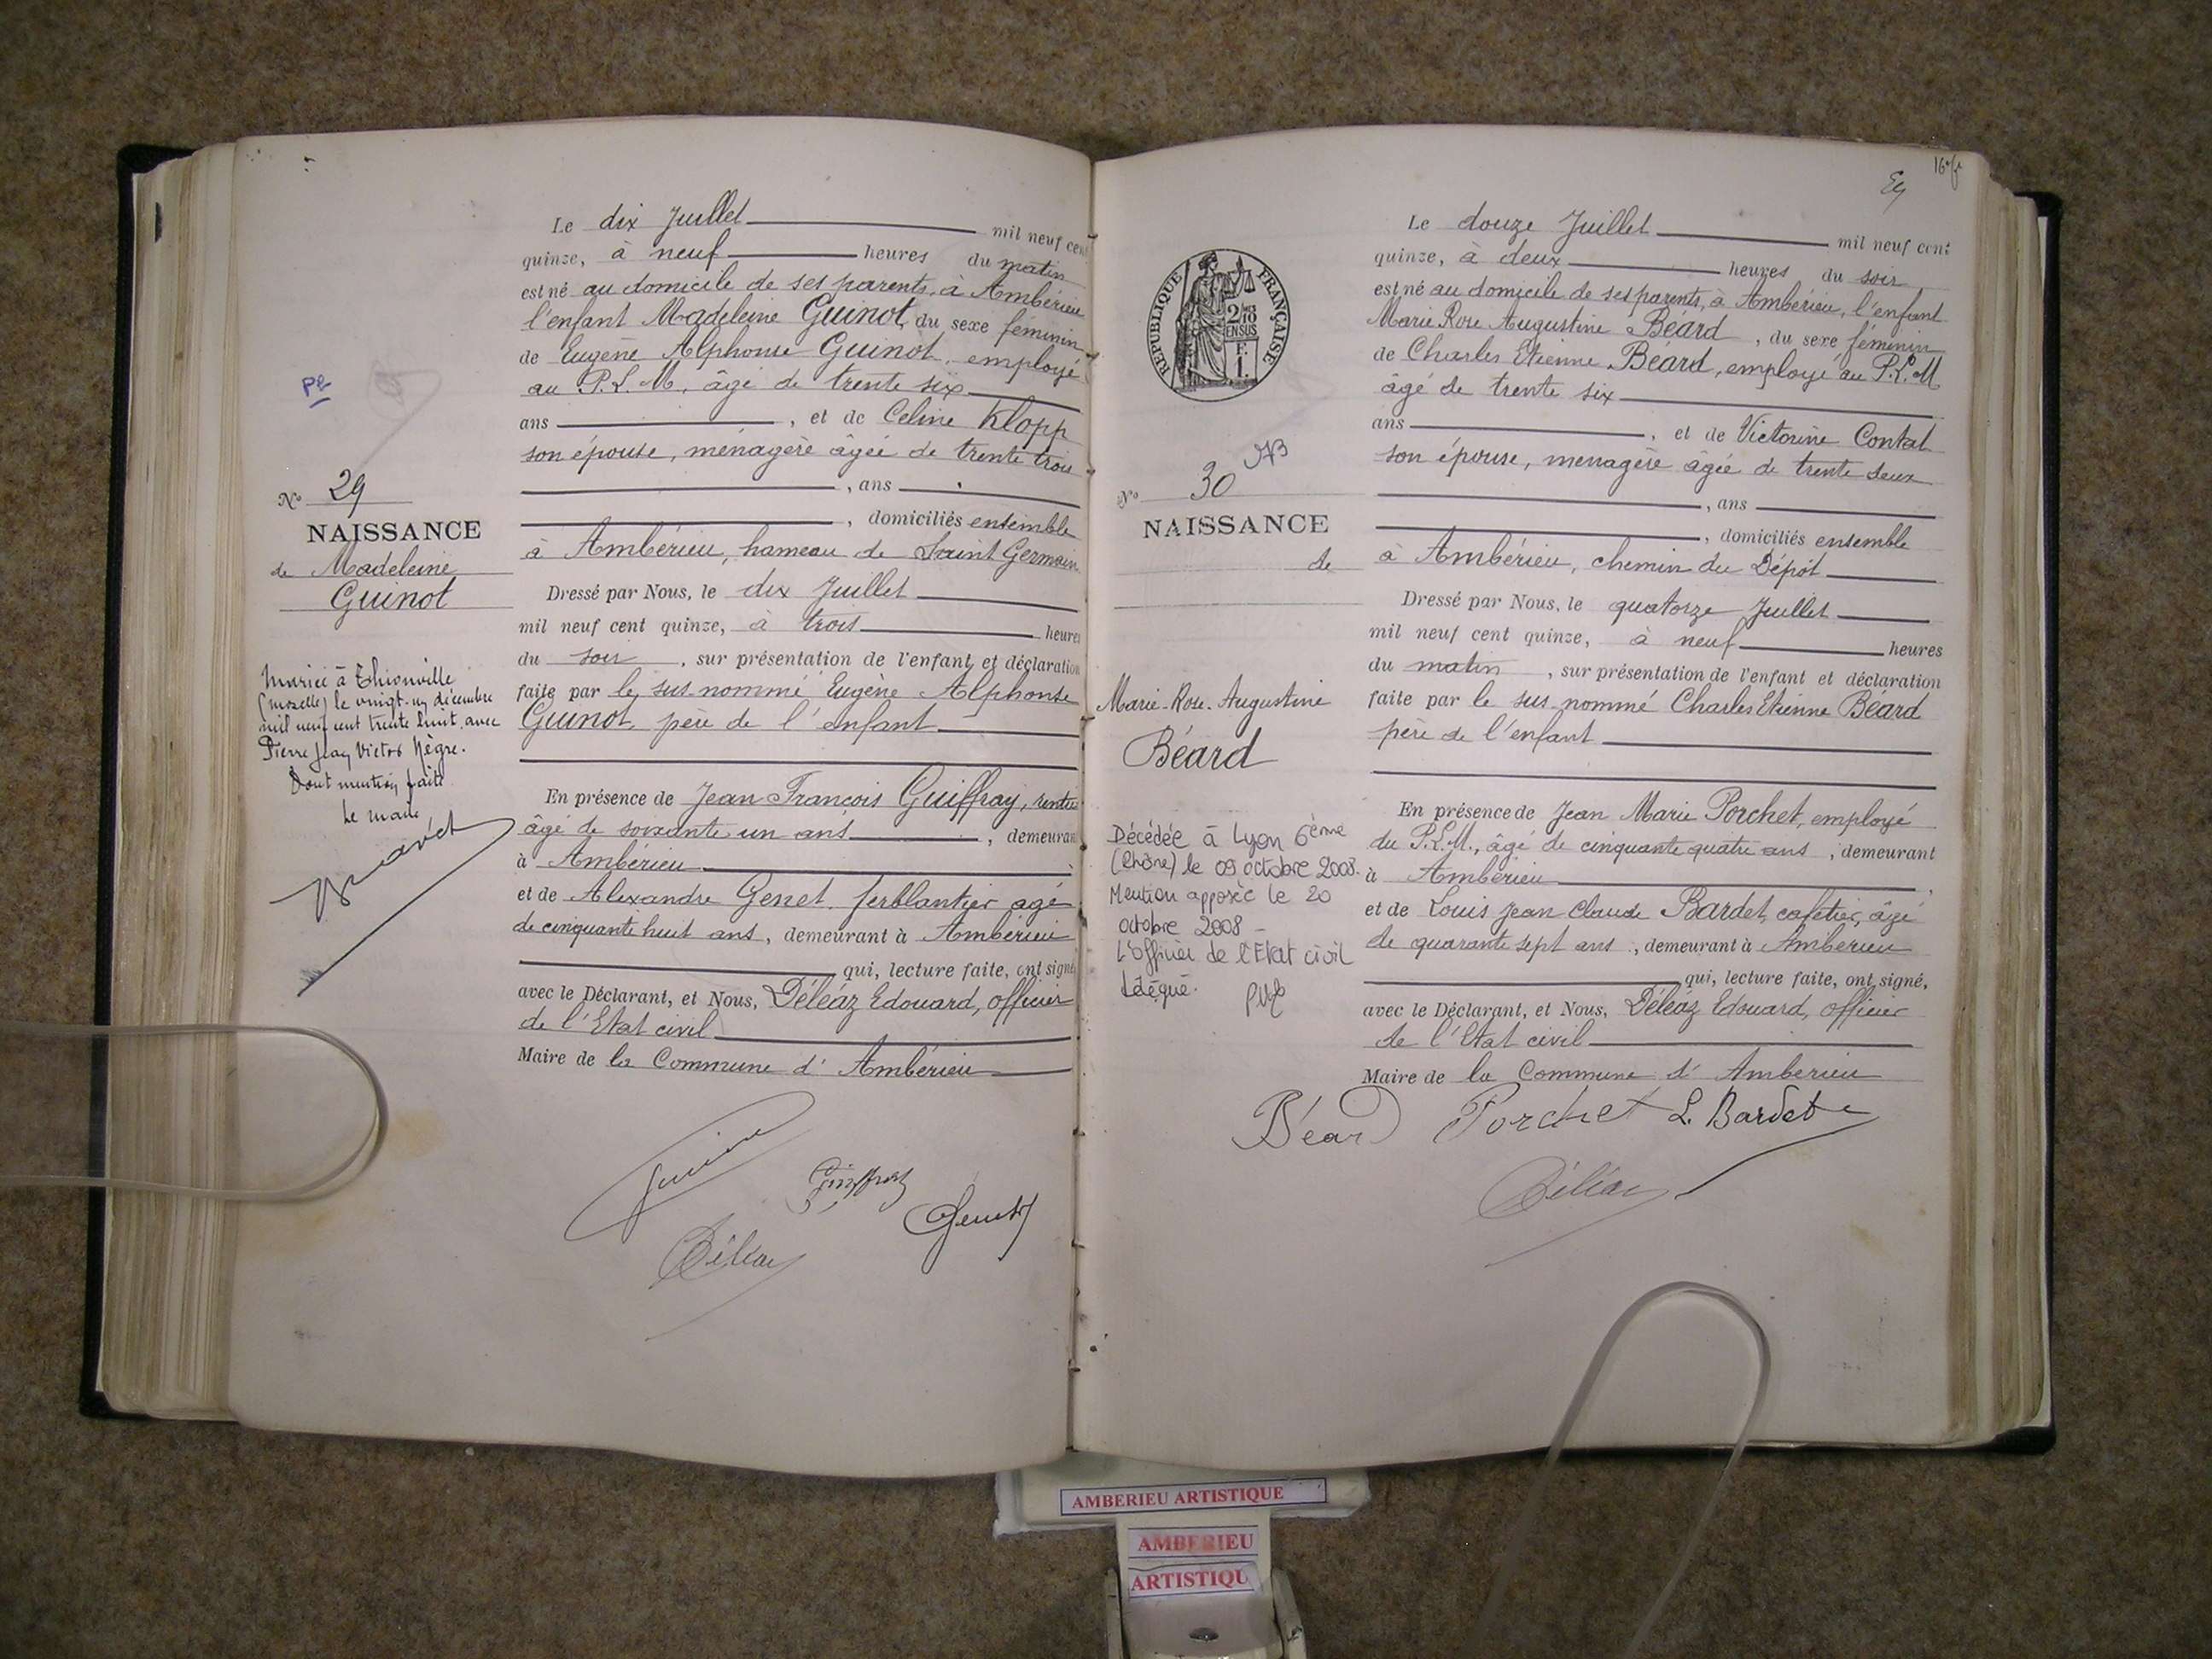 Le dix Juillet mil neuf cent
quinze, à neuf heures du matin
est né au domicile de ses parents, à Ambérieu
l'enfant Madeleine Guinot, du sexe féminin
de Eugène Alphonse Guinot, employé
au P.L.M, âgé de trente six
ans , et de Celine Klopp
son épouse, ménagère âgée de trente trois
, ans
, domiciliés ensemble
à Ambérieu, hameau de Saint Germain
Dressé par Nous, le dix Juillet
mil neuf cent quinze, à trois heures
du soir , sur présentation de l'enfant et déclaration
faite par le sus-nommé Eugène Alphonse
Guinot, père de l'enfant
En présence de Jean François Guiffray, rentier
âgé de soixante un ans , demeurant
à Ambérieu
et de Alexandre Genet, ferblantier âgé
de cinquante huit ans, demeurant à Ambérieu
qui, lecture faite, ont signé
avec le Déclarant, et Nous, Déléaz Edouard, officier
de l'Etat civil
Maire de la Commune d'Ambérieu
Guiffray
Genet
Déléaz
No 29
NAISSANCE
de Madeleine
Guinot
Mariée à Thionville
(Moselle) le vingt-un décembre
mil neuf cent trente huit avec
Pierre Jean Victor Nègre.
Dont mention faite
Le maire
16
Le douze Juillet mil neuf cent
quinze, à deux heures du soir
est né au domicile de ses parents, à Ambérieu, l'enfant
Marie Rose Augustine Béard , du sexe féminin
de Charles Etienne Béard, employé au P.L.M
âgé de trente six
ans , et de Victorine Contat
son épouse, ménagère âgée de trente deux
, ans
, domiciliés ensemble
à Ambérieu, chemin du Dépôt
Dressé par Nous, le quatorze Juillet
mil neuf cent quinze, à neuf heures
du matin , sur présentation de l'enfant et déclaration
faite par le sus-nommé Charles Etienne Béard
père de l'enfant
En présence de Jean Marie Porchet, employé
du P.L.M., âgé de cinquante quatre ans , demeurant
à Ambérieu ,
et de Louis Jean Claude Bardet, cafetier, âgé
de quarante sept ans , demeurant à Ambérieu
qui, lecture faite, ont signé,
avec le Déclarant, et Nous, Déléaz Edouard, officier
de l'Etat civil
Maire de la Commune d'Ambérieu
Béard Porchet L. Bardet
Déléaz
REPUBLIQUE FRANÇAISE
No 30
NAISSANCE
de
Marie-Rose-Augustine
Béard
Décédée à Lyon 6ème
(Rhône) le 09 octobre 2008.
Mention apposée le 20
octobre 2008
L'officier de l'Etat civil
délégué.
AMBERIEU ARTISTIQUE
AMBERIEU
ARTISTIQU